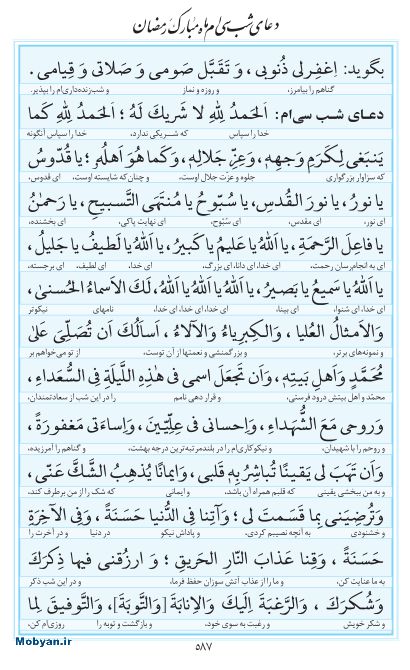 دعای شب سی‌ام ماه مبارک رمضان
بگوید: اِغفِرلی ذُنوبی، وَ تَقَبَّل صَومی وَ صَلاتی وَ قِیامی.
گناهم را بیامرز، و روزه و نماز و شب‌زنده‌داری‌ام را بپذیر.
دعـای شب سی‌اُم: اَلحَمدُ لِلّٰهِ لا شَریكَ لَهُ؛ اَلحَمدُ لِلّٰهِ كَما
خدا را سپاس که شــریکی ندارد، خدا را سپاس آنگونه
یَنبَغی لِكَرَمِ وَجهِهِ، وَعِزِّ جَلالِهِ، وَكَما هُوَ اَهلُهُ؛ یا قُدّوسُ
که سزاوار بزرگواری جلوه و عزت جلال اوست، و چنان‌که شایسته اوست، ای قدوس،
یا نورُ، یا نورَ القُدسِ، یا سُبّوحُ یا مُنتَهَی التَّسبیحِ، یا رَحمٰنُ
ای نور، ای مقدس، ای سُبّوح، ای نهایت پاکی، ای بخشنده،
یا فاعِلَ الرَّحمَةِ، یا اَللّٰهُ یا عَلیمُ یا كَبیرُ، یا اَللّٰهُ یا لَطیفُ یا جَلیلُ،
ای به انجام‌رسان رحمت، ای خدا، ای دانا، ای بزرگ، ای خدا، ای لطیف، ای برجسته،
یا اَللّٰهُ یا سَمیعُ یا بَصیرُ، یا اَللّٰهُ یا اَللّٰهُ یا اَللّٰهُ، لَكَ الاَسماءُ الحُسنیٰ،
ای خدا، ای شنوا، ای بینا، ای خدا، ای خدا، ای خدا، نامهای نیکوتر
وَالاَمثالُ العُلیا، وَالكِبرِیاءُ وَالآلاءُ، اَسأَلُكَ اَن تُصَلِّیَ عَلیٰ
و نمونه‌های برتر، و بزرگمنشی و نعمتها از آن توست، از تو می‌خواهم بر
مُحَمَّدٍ وَاَهلِ بَیتِهِ، وَاَن تَجعَلَ اسمی فی هٰذِهِ اللَّیلَةِ فِی السُّعَداءِ،
محمّد و اهل بیتش درود فرستی، و قرار دهی نامم را در این شب از سعادتمندان،
وَروحی مَعَ الشُّهَداءِ، وَاِحسانی فی عِلِّیّینَ، وَاِساءَتی مَغفورَةً،
و روحم را با شهیدان، و نیکوکاری‌ام را در بلندمرتبه‌ترین درجه بهشت، و گناهم را آمرزیده،
وَاَن تَهَبَ لی یَقینًا تُباشِرُ بِهِ قَلبی، وَایمانًا یُذهِبُ الشَّكَّ عَنّی،
و به من ببخشی یقینی که قلبم همراه آن باشد، و ایمانی که شک را از من برطرف کند،
وَتُرضِیَنی بِما قَسَمتَ لی؛ وَآتِنا فِی الدُّنیا حَسَنَةً، وَفِی الآخِرَةِ
و خشنودی به آنچه نصیبم کردی، و پاداش نیکو در دنیا و در آخرت را
حَسَنَةً، وَقِنا عَذابَ النّارِ الحَریقِ؛ وَ ارزُقنی فیها ذِكرَكَ
به ما عنایت کن، و ما را از عذاب آتش سوزان حفظ فرما، و در این شب ذکر
وَشُكرَكَ، وَالرَّغبَةَ اِلَیكَ وَالاِنابَةَ [وَالتَّوبَةَ]، وَالتَّوفیقَ لِما
و شکر خویش و رغبت به سوی خود، و بازگشت و توبه را روزی‌ام کن،
Mobyan.ir
۵۸۷